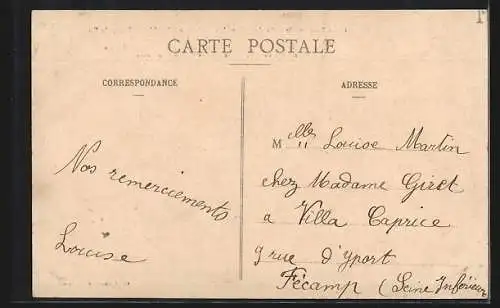 CARTE POSTALE
CORRESPONDANCE
ADRESSE
Mlle Louise Martin
chez Madame Giret
a Villa Caprice
9 rue d'Yport
Fécamp (Seine Inférieure
Nos remerciements
Louise